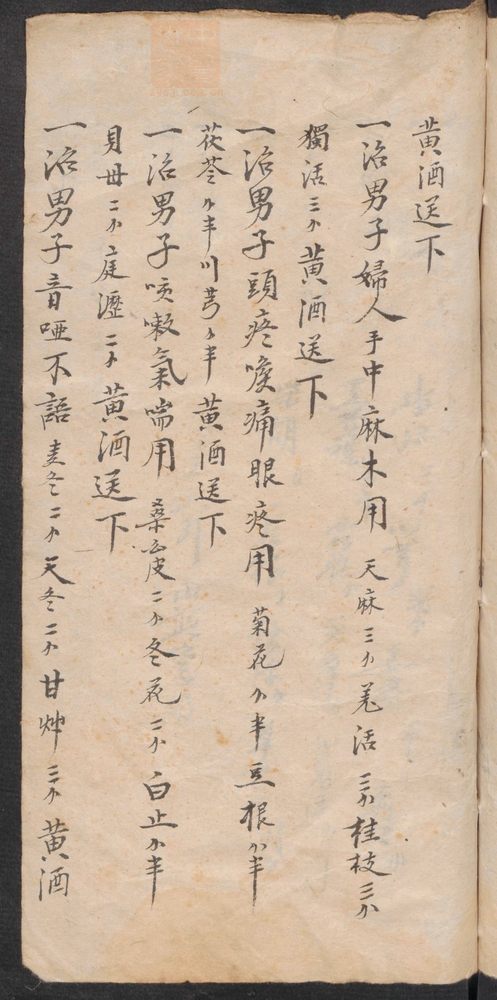 黄酒送下
一治男子婦人手中麻木用 天麻三分羌活三分桂枝三分
獨活三分黄酒送下
一治男子頭疼喉痛眼疼用 菊花分半豆根分半
茯苓分半川芎分半黄酒送下
一治男子咳嗽氣喘用 桑皮二分冬花二分白止分半
貝母二分庭瀝二分黄酒送下
一治男子音啞不語 麦冬二分天冬二分甘艸三分黄酒